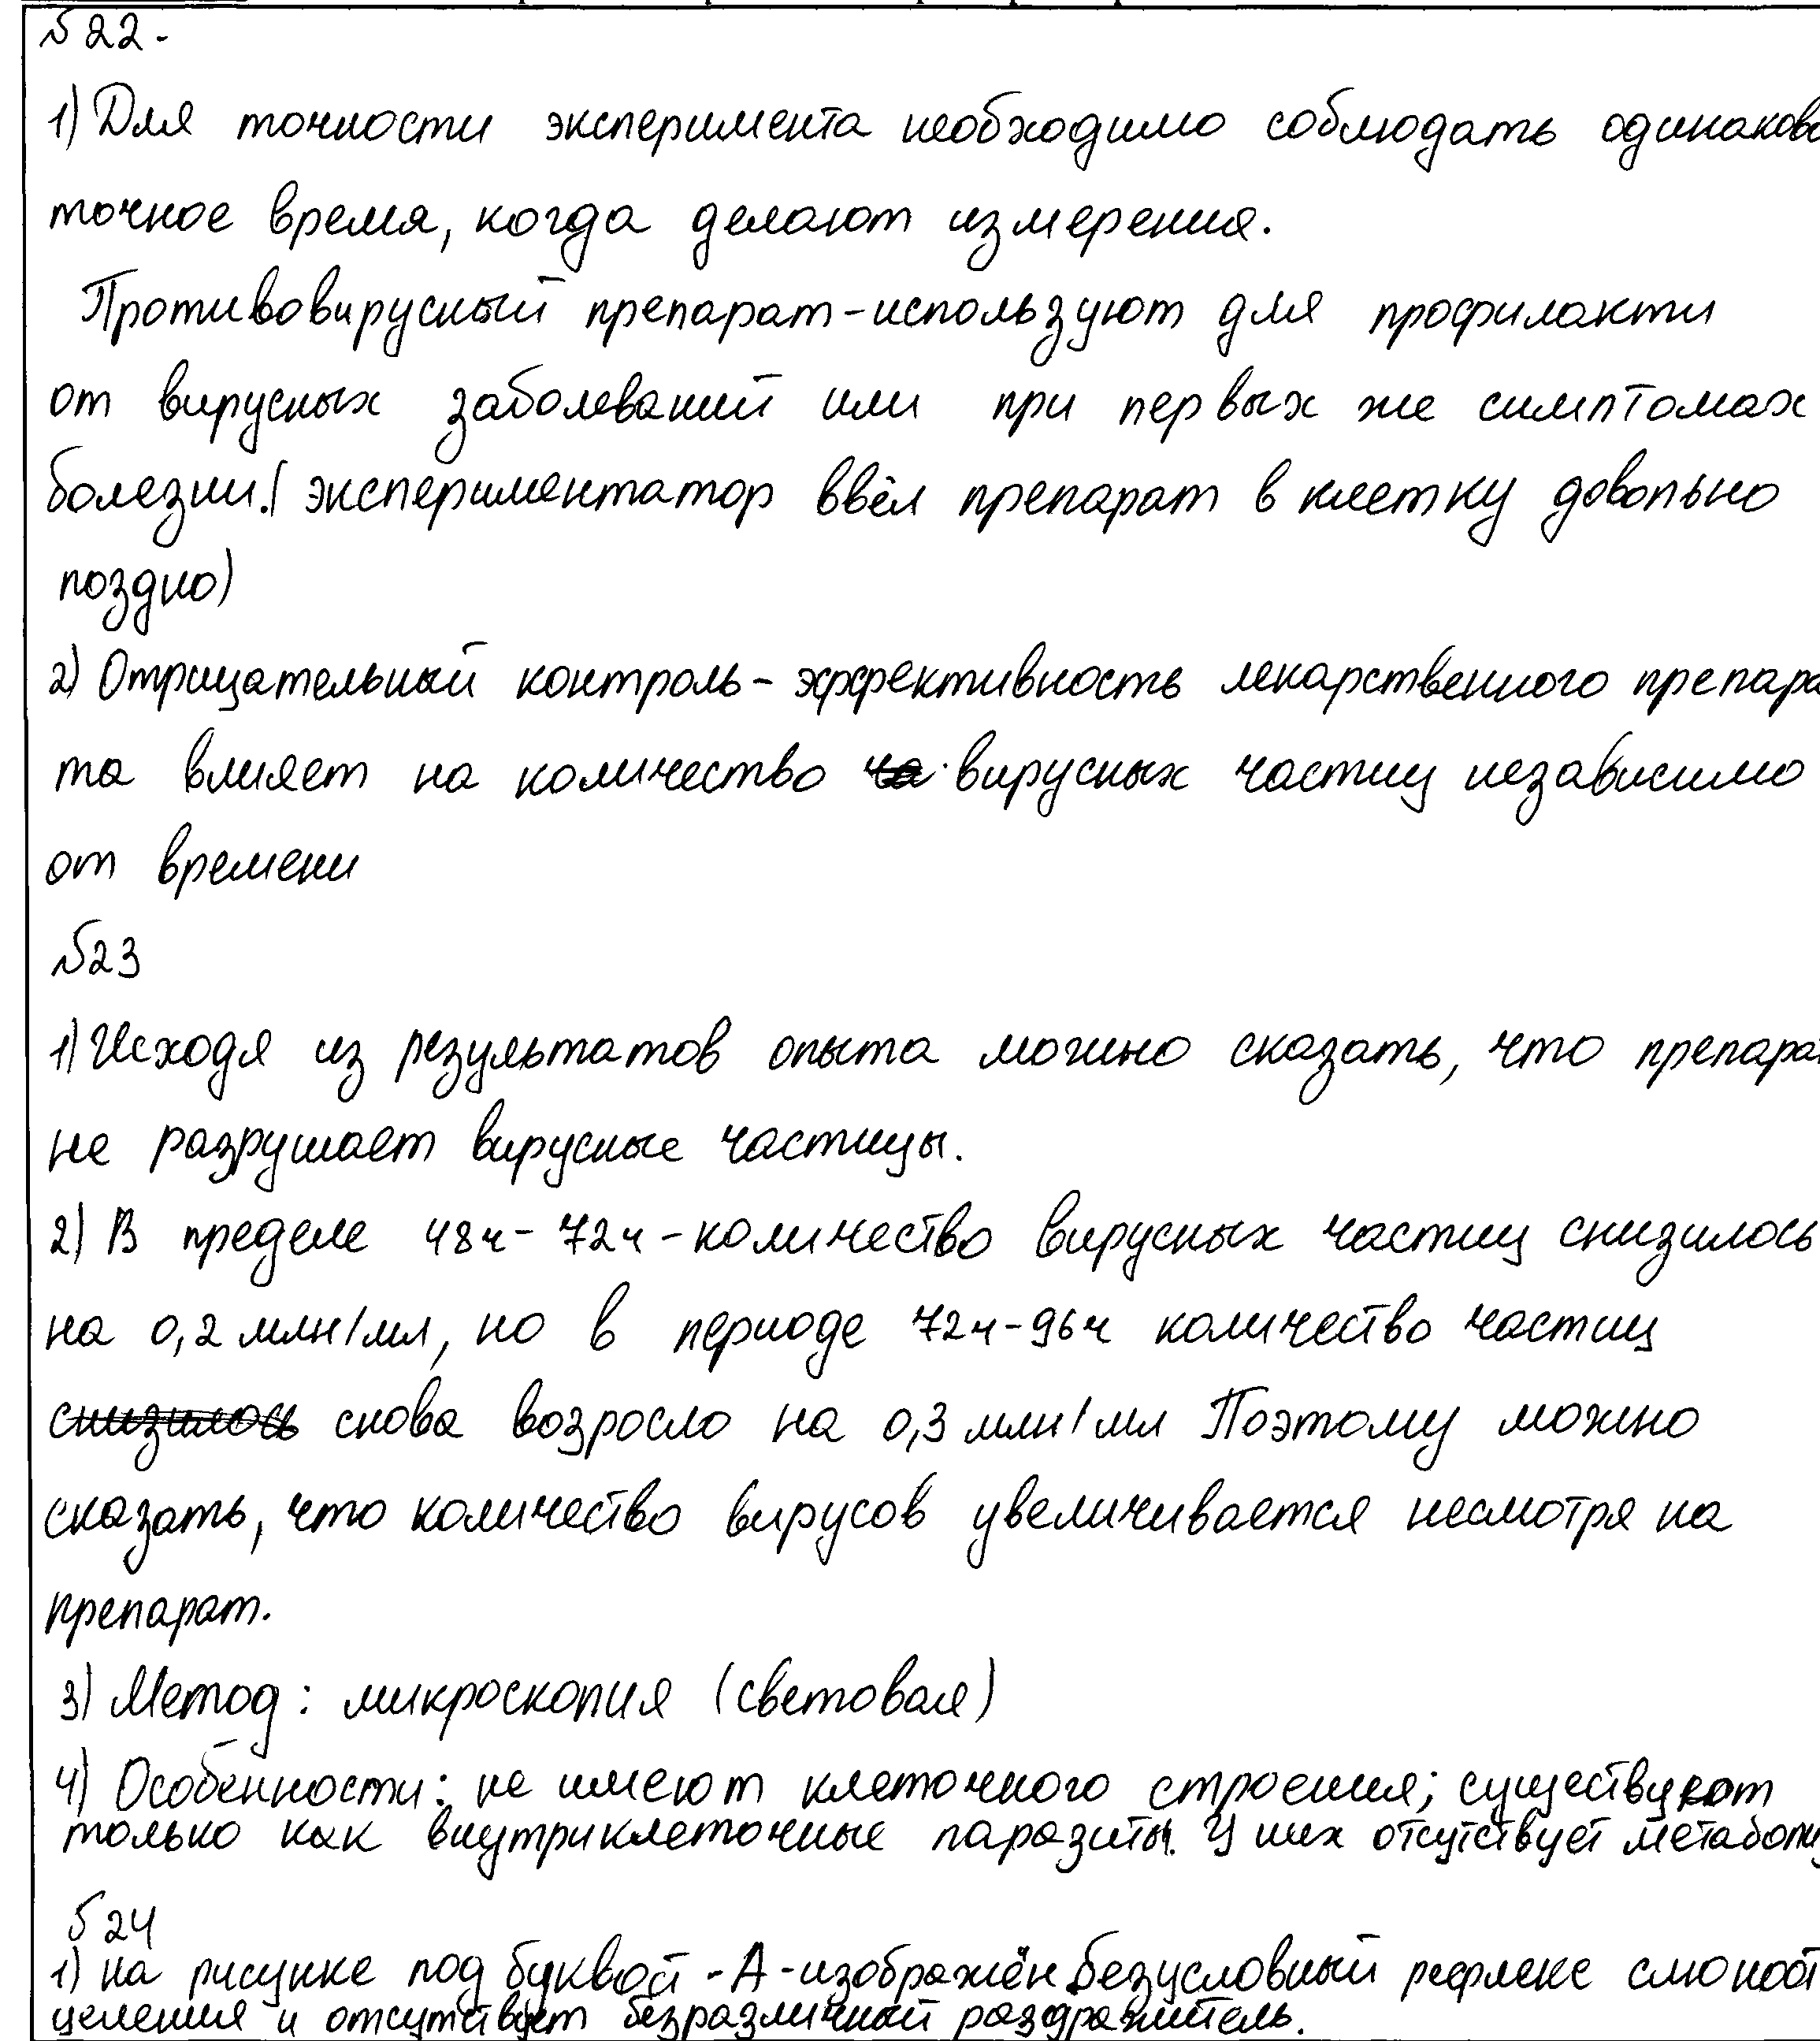 № 22.
1) Для точности эксперимента необходимо соблюдать одинаково
точное время, когда делают измерения.
Противовирусный препарат-используют для профилакти
от вирусных заболеваний или при первых же симптомах
болезни.(экспериментатор ввёл препарат в клетку довольно
поздно)
2) Отрицательный контроль- эффективность лекарственного препара
та влияет на количество вирусных частиц независимо
от времени
№23
1) Исходя из результатов опыта можно сказать, что препарат
не разрушает вирусные частицы.
2) В пределе 48ч- 72ч -количество вирусных частиц снизилось
на 0,2 млн/мл, но в периоде 72ч-96ч количество частиц
снизилось снова возросло на 0,3 млн/мл Поэтому можно
сказать, что количество вирусов увеличивается несмотря на
препарат.
3) Метод: микроскопия (световая)
4) Особенности: не имеют клеточного строения; существуют
только как внутриклеточные паразиты. У них отсутствует метаболи
№ 24
1) на рисунке под буквой -А-изображён безусловный рефлекс слюноот
целения и отсутствует безразличный раздражитель.